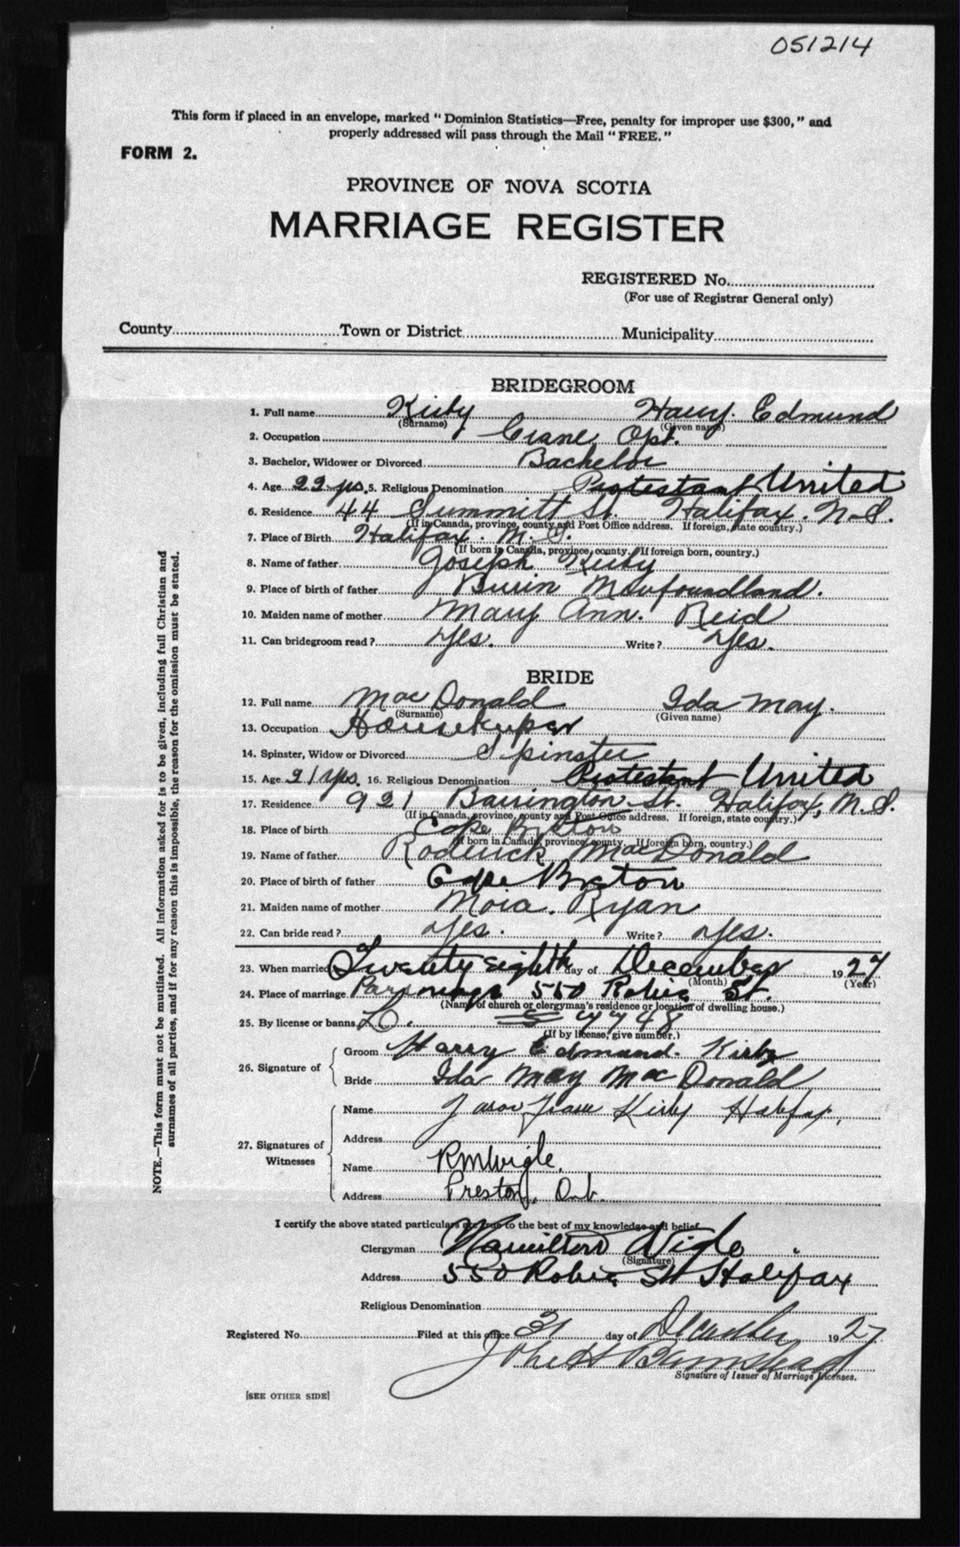 051214
This form if placed in an envelope, marked "Dominion Statistics—Free, penalty for improper use $300," and
properly addressed will pass through the Mail "FREE."
FORM 2.
PROVINCE OF NOVA SCOTIA
MARRIAGE REGISTER
REGISTERED No.
(For use of Registrar General only)
County Town or District Municipality
BRIDEGROOM
1. Full name Kirby Harry Edmund
(Surname) (Given name)
2. Occupation Crane Opt.
3. Bachelor, Widower or Divorced Bachelor
4. Age 22 yrs. 5. Religious Denomination Protestant United
6. Residence 44 Summitt St. Halifax. N.S.
(If in Canada, province, county and Post Office address. If foreign, state country.)
7. Place of Birth Halifax. N.S.
(If born in Canada, province, county. If foreign born, country.)
8. Name of father Joseph Kirby
9. Place of birth of father Burin Newfoundland.
10. Maiden name of mother Mary Ann. Reid
11. Can bridegroom read? Yes. Write? Yes.
BRIDE
12. Full name MacDonald Ida May.
(Surname) (Given name)
13. Occupation Housekeeper
14. Spinster, Widow or Divorced Spinster
15. Age 21 yrs. 16. Religious Denomination Protestant United
17. Residence 921 Barrington St. Halifax, N.S.
(If in Canada, province, county and Post Office address. If foreign, state country.)
18. Place of birth Cape Breton
(If born in Canada, province, county. If foreign born, country.)
19. Name of father Roderick MacDonald
20. Place of birth of father Cape Breton
21. Maiden name of mother Mora. Ryan
22. Can bride read? Yes. Write? Yes.
23. When married Twenty eighth day of December 1927
(Month) (Year)
24. Place of marriage Parsonage 550 Robie St.
(Name of church or clergyman's residence or location of dwelling house.)
25. By license or banns L.
(If by license, give number.)
26. Signature of
Groom Harry Edmund. Kirby
Bride Ida May MacDonald
27. Signatures of
Witnesses
Name Kirby Halifax,
Address
Name RMWigle.
Address Preston, Ont.
I certify the above stated particulars are true to the best of my knowledge and belief.
Clergyman Hamilton Wigle
(Signature)
Address 550 Robie St Halifax
Religious Denomination
Registered No. Filed at this office 31 day of December 1927.
John H Barnstead
Signature of Issuer of Marriage Licenses.
[SEE OTHER SIDE]
NOTE.—This form must not be mutilated. All information asked for is to be given, including full Christian and
surnames of all parties, and if for any reason this is impossible, the reason for the omission must be stated.